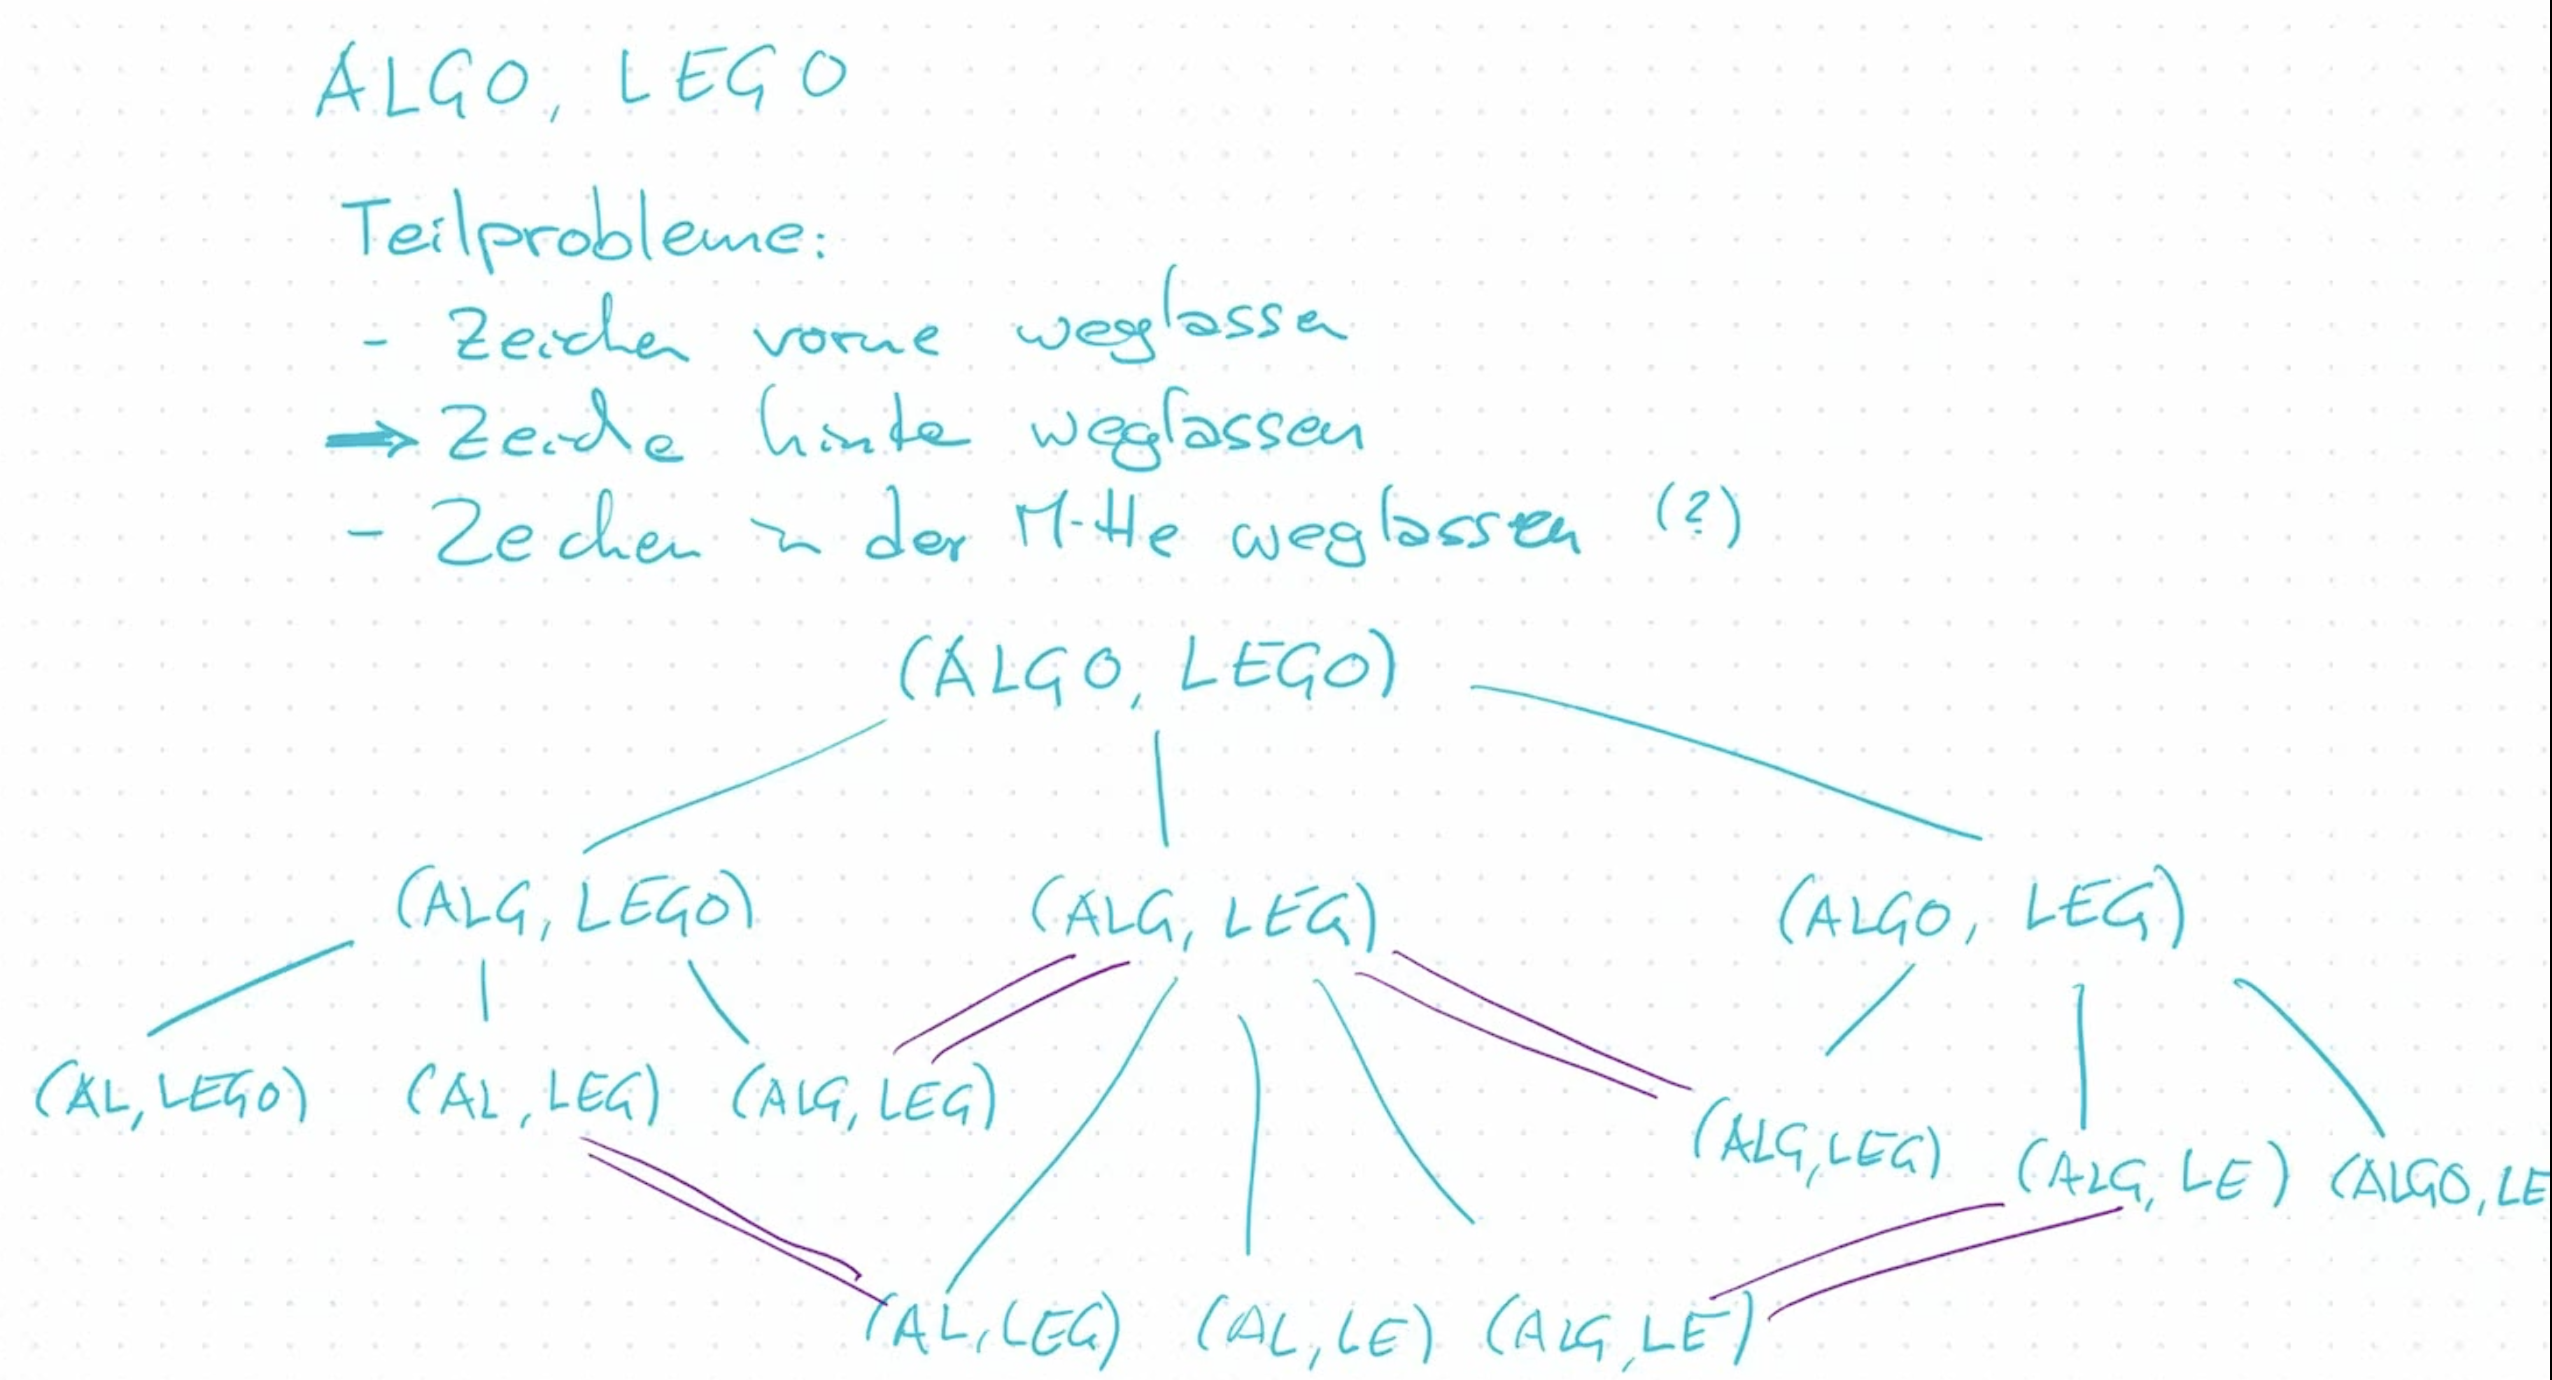 ALGO, LEGO
Teilprobleme:
- Zeichen vorne weglassen
→ Zeichen hinten weglassen
- Zeichen in der Mitte weglassen (?)
(ALGO, LEGO)
(ALG, LEGO) (ALG, LEG) (ALGO, LEG)
(AL, LEGO) (AL, LEG) (ALG, LEG) (ALG, LEG) (ALG, LE) (ALGO, LE
(AL, LEG) (AL, LE) (ALG, LE)